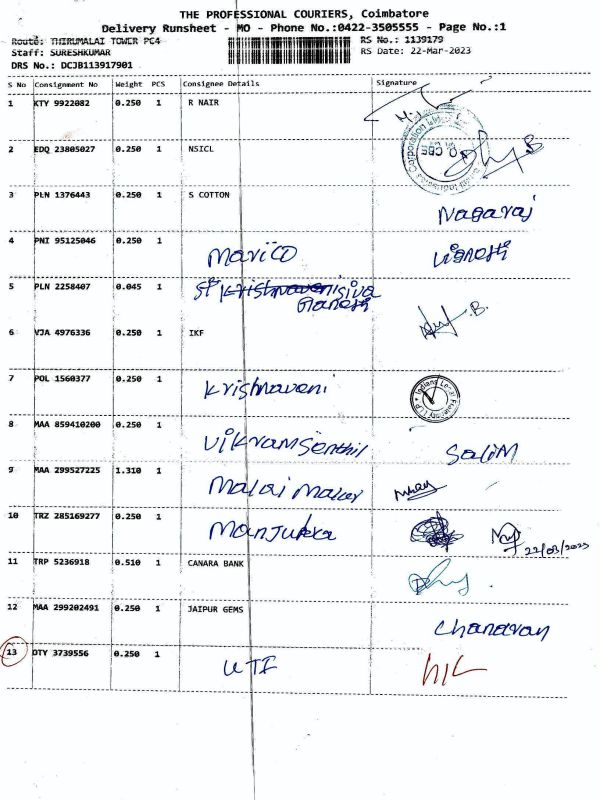 THE PROFESSIONAL COURIERS, Coimbatore
Delivery Runsheet - MO - Phone No.:0422-3505555 - Page No.:1
Route: THIRUMALAI TOWER PC4 RS No.: 1139179
Staff: SURESHKUMAR RS Date: 22-Mar-2023
DRS No.: DCJB113917901
S No Consignment No Weight PCS Consignee Details Signature
1 KTY 9922082 0.250 1 R NAIR
2 EDQ 23805027 0.250 1 NSICL
3 PLN 1376443 0.250 1 S COTTON Nagaraj
4 PNI 95125046 0.250 1 Marico Vignesh
5 PLN 2258407 0.045 1 Siva
Ganesh
6 VJA 4976336 0.250 1 IKF
7 POL 1560377 0.250 1 Krishnaveni
8 MAA 859410200 0.250 1 Vikram Senthil Salim
9 MAA 299527225 1.310 1 Malai Malar
10 TRZ 285169277 0.250 1 22/03/2023
11 TRP 5236918 0.510 1 CANARA BANK
12 MAA 299202491 0.250 1 JAIPUR GEMS
13 OTY 3739556 0.250 1 UTI